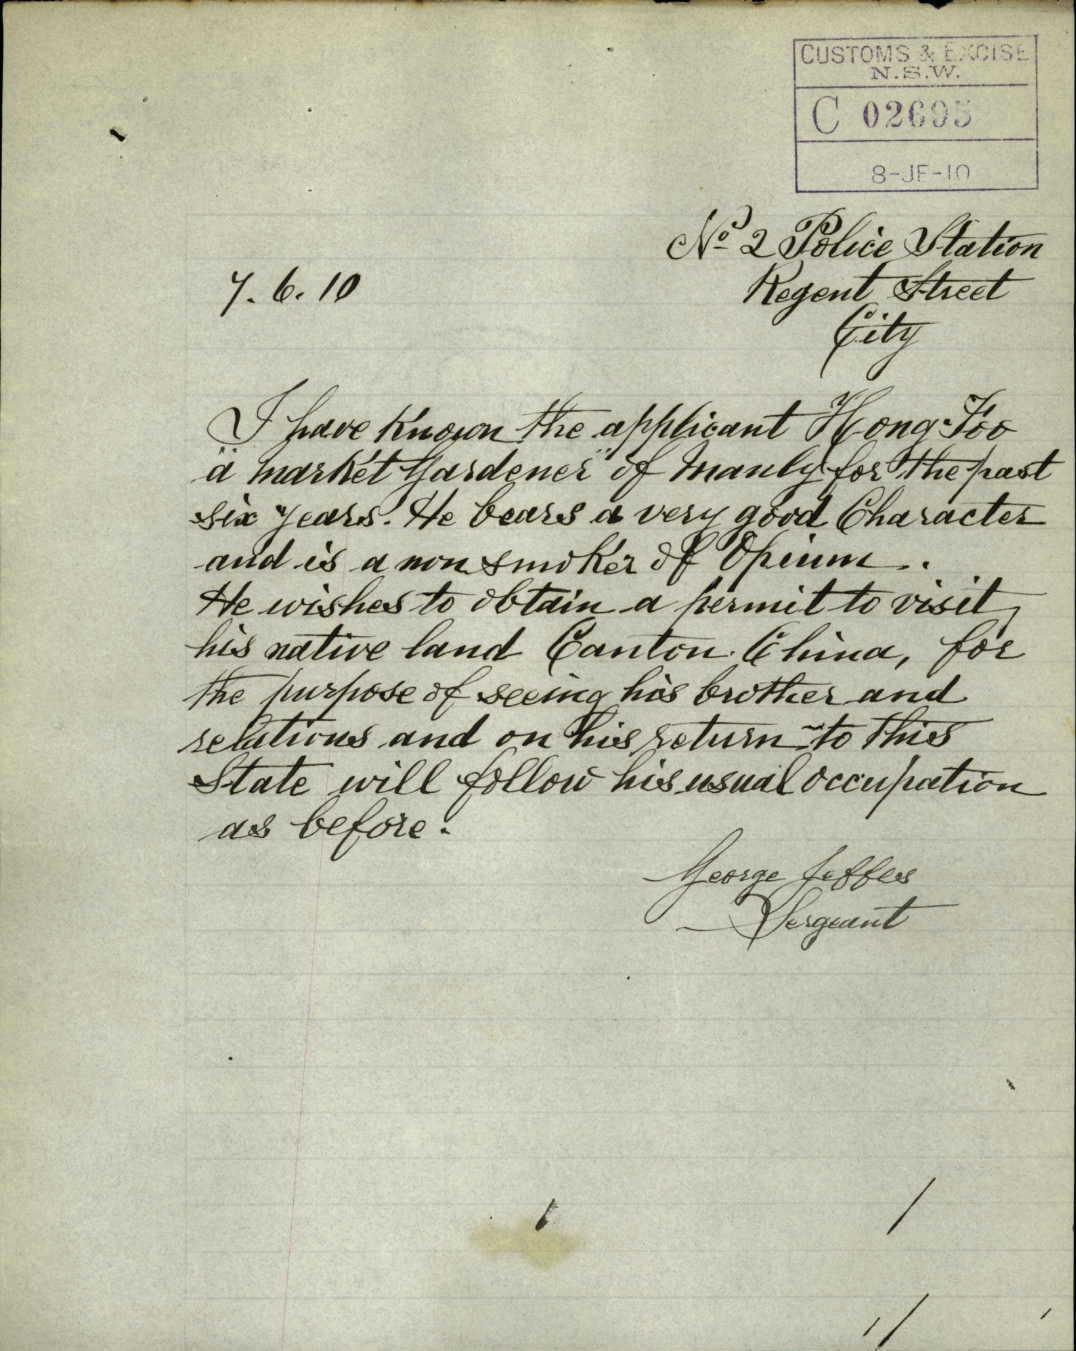 CUSTOMS & EXCISE
N.S.W.
C 02695
8-JE-10
No 2 Police Station
7.6.10
Regent Street
City
I have known the applicant Hong Foo
"a market Gardener" of Manly for the past
six years. He bears a very good Character
and is a non smoker of Opium.
He wishes to obtain a permit to visit
his native land Canton China, for
the purpose of seeing his brother and
relations and on his return to this
State will follow his usual occupation
as before.
George Jeffes
Sergeant